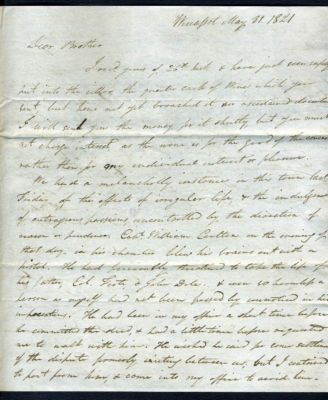 Wiscasset May 31. 1821
Dear Brother
I recd yours of 26th inst & have just
put into the cellar the quarter cask of Wine which you
sent but have not yet broached it or ascertained
I will send you the money for it shortly but you must
not charge interest as the wine is for the good of the
rather than for my individual interest or pleasure.
We had a melancholy instance in this town last
Friday of the effects of irregular life, & the indulgence
of outrageous passions uncontrolled by the direction of
reason or prudence. Capt. William on the evening of
that day, in his chamber blew his brains out with a
pistol. He had previously threatened to take the life of
his father, Col. Foote & John Dole. & even so harmless a
person as myself had not been passed by unnoticed in his
He had been in my office a short time before
he committed the deed & had a little time before requested
me to walk with him. He wished he said to come settlement
of the dispute formerly existing between us, but I contrived
to part from him, & come into my office to avoid him.